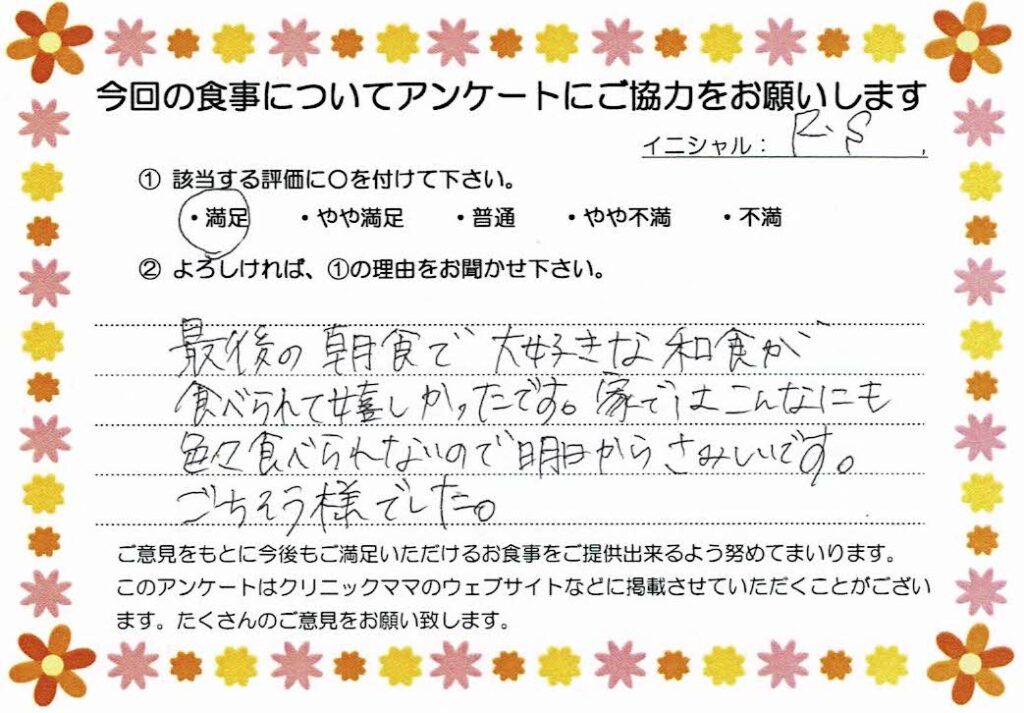 今回の食事についてアンケートにご協力をお願いします
イニシャル： R.S
① 該当する評価に〇を付けて下さい。
・満足 ・やや満足 ・普通 ・やや不満 ・不満
② よろしければ、①の理由をお聞かせ下さい。
最後の朝食で大好きな和食が
食べられて嬉しかったです。家ではこんなにも
色々食べられないので明日からさみしいです。
ごちそう様でした。
ご意見をもとに今後もご満足いただけるお食事をご提供出来るよう努めてまいります。
このアンケートはクリニックママのウェブサイトなどに掲載させていただくことがござい
ます。たくさんのご意見をお願い致します。